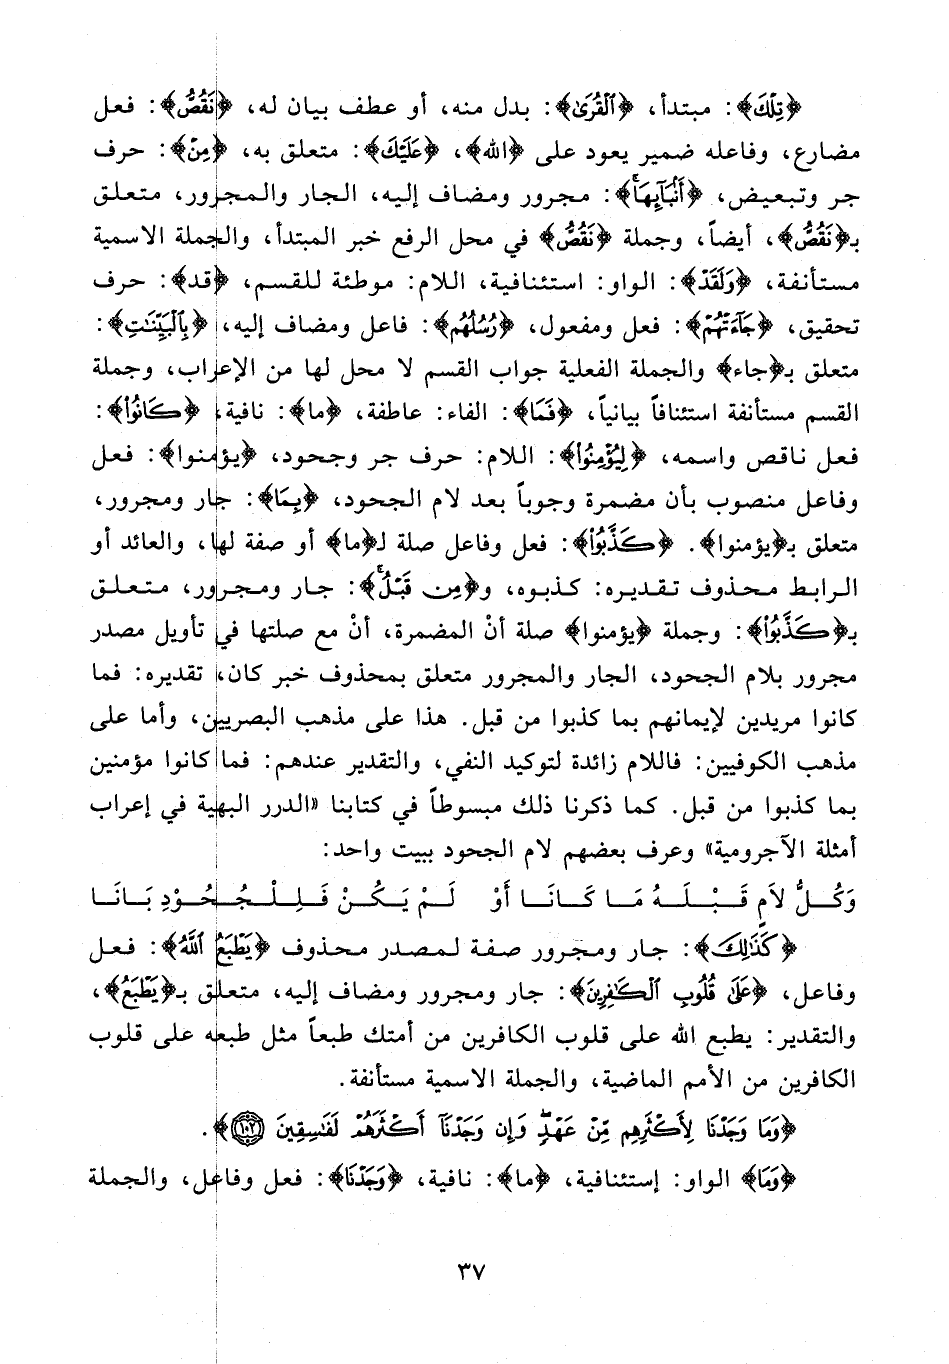 ﴿تِلْكَ﴾: مبتدأ، ﴿الْقُرَىٰ﴾: بدل منه، أو عطف بيان له، ﴿نَقُصُّ﴾: فعل
مضارع، وفاعله ضمير يعود على ﴿الله﴾، ﴿عَلَيْكَ﴾: متعلق به، ﴿مِنْ﴾: حرف
جر وتبعيض، ﴿أَنْبَآئِهَا﴾: مجرور ومضاف إليه، الجار والمجرور، متعلق
بـ﴿نَقُصُّ﴾، أيضاً، وجملة ﴿نَقُصُّ﴾ في محل الرفع خبر المبتدأ، والجملة الاسمية
مستأنفة، ﴿وَلَقَدْ﴾: الواو: استئنافية، اللام: موطئة للقسم، ﴿قد﴾: حرف
تحقيق، ﴿جَآءَتْهُمْ﴾: فعل ومفعول، ﴿رُسُلُهُم﴾: فاعل ومضاف إليه، ﴿بِالْبَيِّنَٰتِ﴾:
متعلق بـ﴿جاء﴾ والجملة الفعلية جواب القسم لا محل لها من الإعراب، وجملة
القسم مستأنفة استئنافاً بيانياً، ﴿فَمَا﴾: الفاء: عاطفة، ﴿ما﴾: نافية، ﴿كَانُوا۟﴾:
فعل ناقص واسمه، ﴿لِيُؤْمِنُوا۟﴾: اللام: حرف جر وجحود، ﴿يؤمنوا﴾: فعل
وفاعل منصوب بأن مضمرة وجوباً بعد لام الجحود، ﴿بِمَا﴾: جار ومجرور،
متعلق بـ﴿يؤمنوا﴾. ﴿كَذَّبُوا۟﴾: فعل وفاعل صلة لـ﴿ما﴾ أو صفة لها، والعائد أو
الرابط محذوف تقديره: كذبوه، و﴿مِن قَبْلُ﴾: جار ومجرور، متعلق
بـ﴿كَذَّبُوا۟﴾: وجملة ﴿يؤمنوا﴾ صلة أنْ المضمرة، أنْ مع صلتها في تأويل مصدر
مجرور بلام الجحود، الجار والمجرور متعلق بمحذوف خبر كان، تقديره: فما
كانوا مريدين لإيمانهم بما كذبوا من قبل. هذا على مذهب البصريين، وأما على
مذهب الكوفيين: فاللام زائدة لتوكيد النفي، والتقدير عندهم: فما كانوا مؤمنين
بما كذبوا من قبل. كما ذكرنا ذلك مبسوطاً في كتابنا «الدرر البهية في إعراب
أمثلة الآجرومية» وعرف بعضهم لام الجحود ببيت واحد:
وَكُـلُّ لاَمٍ قَـبْـلَـهُ مَـا كَـانَـا أَوْ لَـمْ يَـكُـنْ فَـلِـلْـجُـحُـوْدِ بَـانَـا
﴿كَذَٰلِكَ﴾: جار ومجرور صفة لمصدر محذوف ﴿يَطْبَعُ اللَّهُ﴾: فعل
وفاعل، ﴿عَلَىٰ قُلُوبِ الْكَٰفِرِينَ﴾: جار ومجرور ومضاف إليه، متعلق بـ﴿يَطْبَعُ﴾،
والتقدير: يطبع الله على قلوب الكافرين من أمتك طبعاً مثل طبعه على قلوب
الكافرين من الأمم الماضية، والجملة الاسمية مستأنفة.
﴿وَمَا وَجَدْنَا لِأَكْثَرِهِم مِّنْ عَهْدٍ وَإِن وَجَدْنَآ أَكْثَرَهُمْ لَفَٰسِقِينَ ١٠٢﴾.
﴿وَمَا﴾ الواو: إستئنافية، ﴿ما﴾: نافية، ﴿وَجَدْنَا﴾: فعل وفاعل، والجملة
٣٧